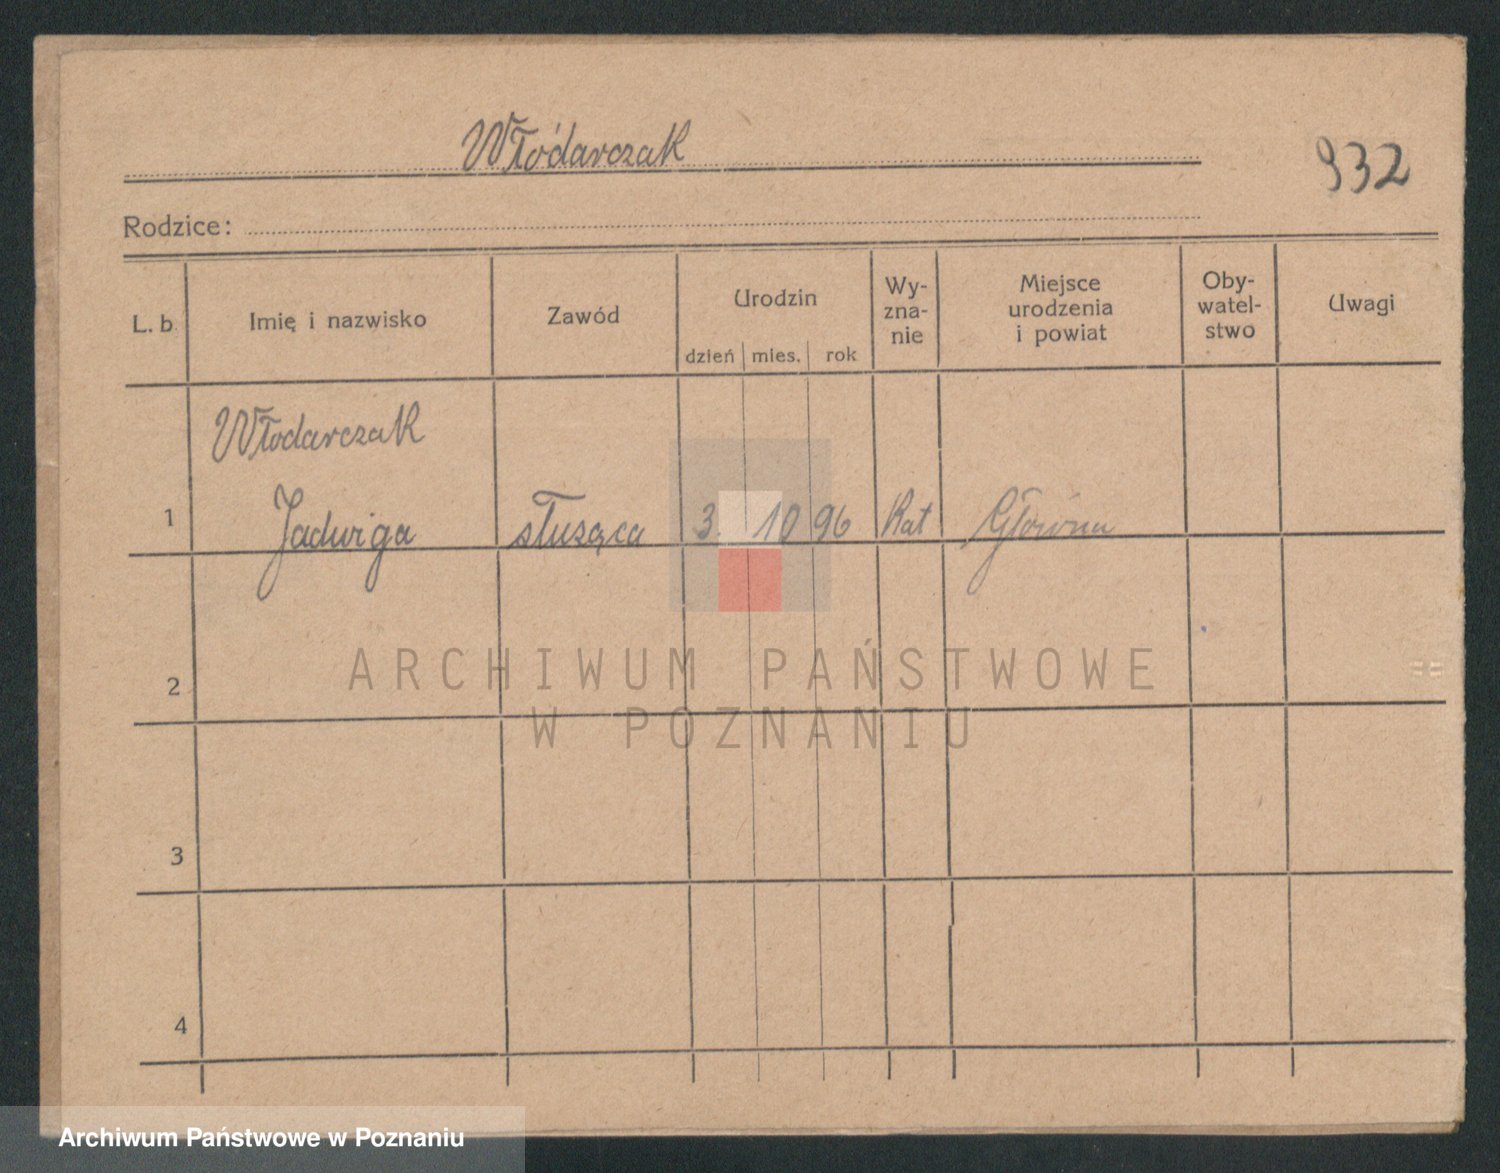 Włódarczak
932
Rodzice:
L. b.
Imię i nazwisko
Zawód
Urodzin
dzień mies. rok
Wy-
zna-
nie
Miejsce
urodzenia
i powiat
Oby-
watel-
stwo
Uwagi
Włodarczak
1 Jadwiga służąca 3. 10 96 Kat Główna
2
3
4
ARCHIWUM PAŃSTWOWE
W POZNANIU
Archiwum Państwowe w Poznaniu